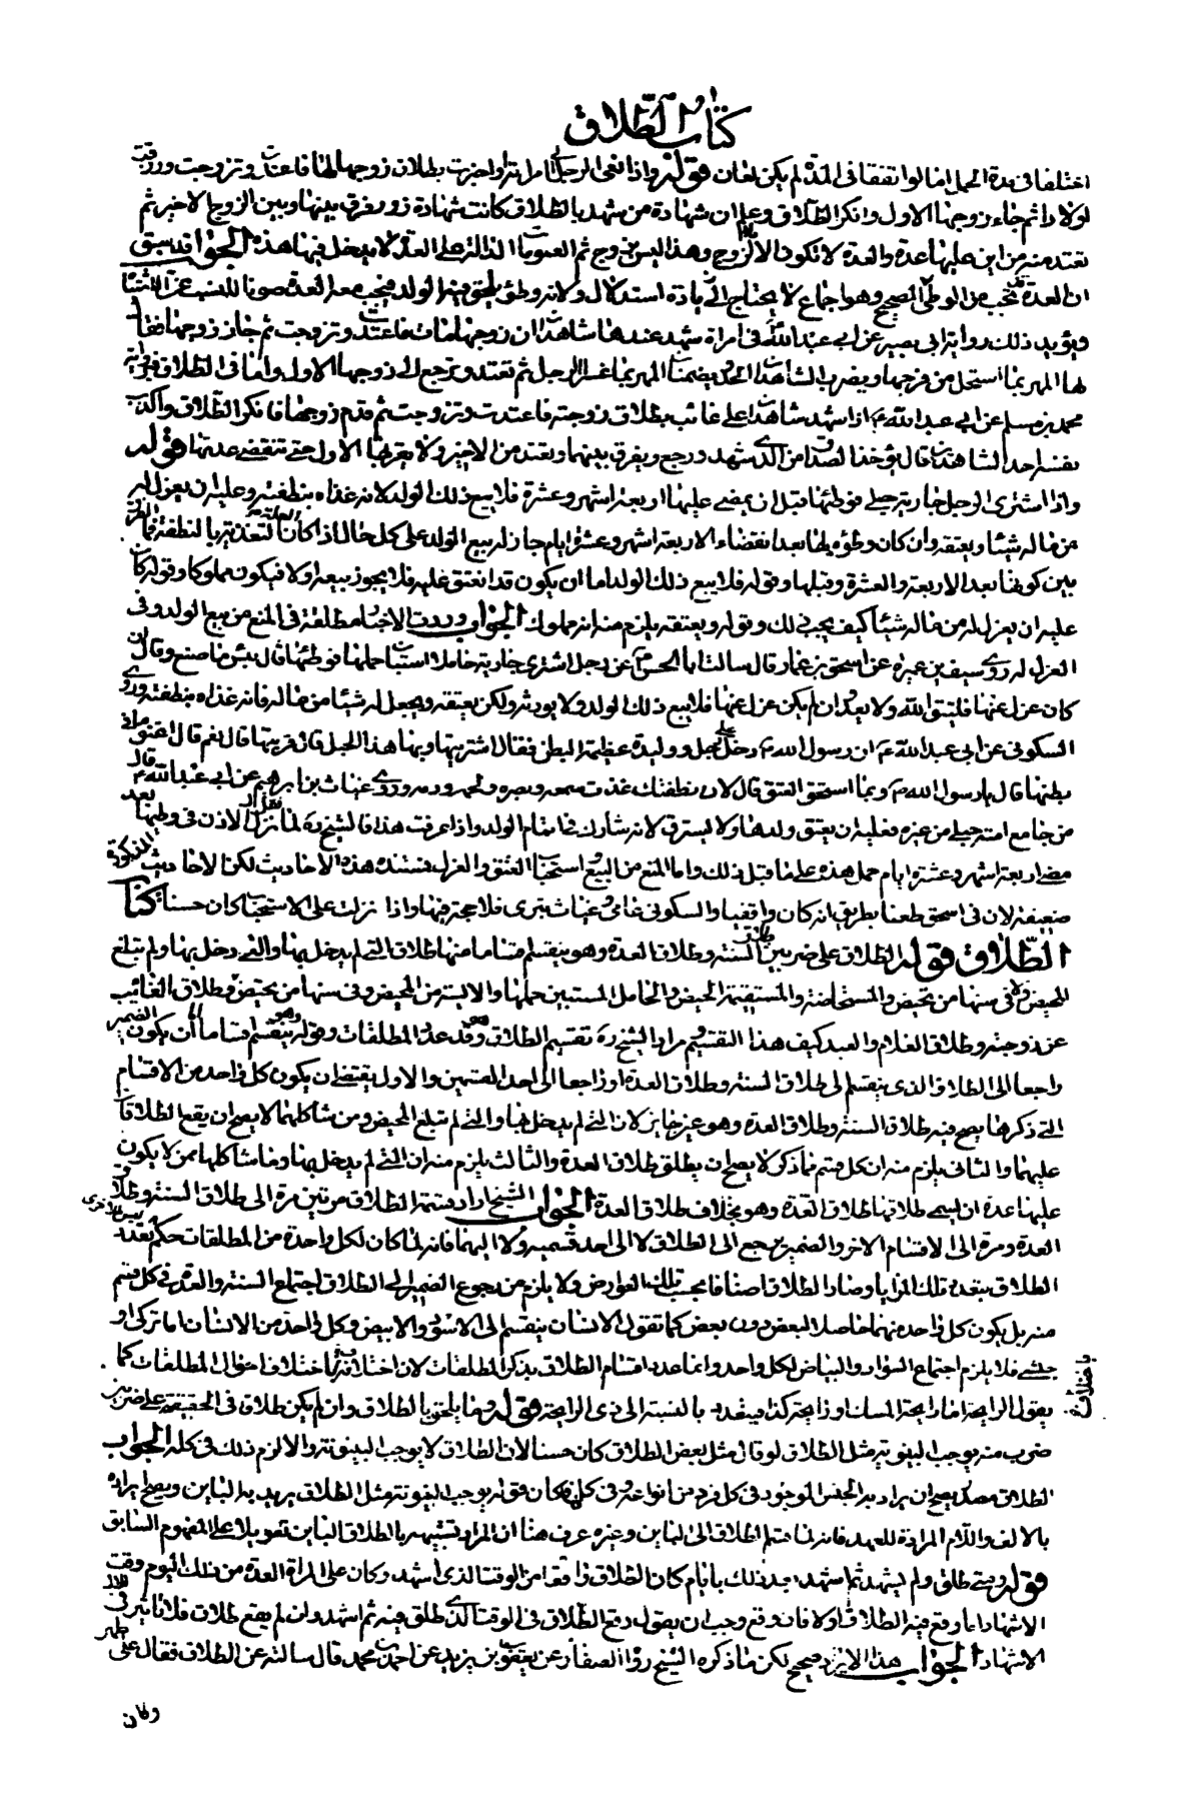 كتاب الطلاق
اختلفا في مدة الحمل اما لو اتفقا في المدة لم يكن لعان قوله واذا نعى الرجل الى امراته او اخبرت بطلاق زوجها لها فاعتدت وتزوجت ورزقت
اولادا ثم جاء زوجها الاول وانكر الطلاق وعلم ان شهادة من شهد بالطلاق كانت شهادة زور فرق بينها وبين الزوج الاخير ثم
تعتد منه من اين عليها عدة والعدة لا تكون الا لزوج وهذا ليس بزوج ثم العمومات الدالة على العدة لا يدخل فيها هذه الجواب قد سبق
ان العدة تجب من الوطي الصحيح وهو اجماع لا يحتاج الى زيادة استدلال ولانه وطؤ يلحق فيه الولد فيجب معه العدة صونا للنسب عن الاشتباه
ويؤيد ذلك رواية ابي بصير عن ابي عبد الله في امراة شهد عندها شاهدان ان زوجها مات فاعتدت وتزوجت ثم جاء زوجها فقال
لها المهر بما استحل من فرجها ويضرب الشاهدان الحد ويضمنان المهر بما غرا الرجل ثم تعتد وترجع الى زوجها الاول واما في الطلاق فرواية
محمد بن مسلم عن ابي عبد الله اذا شهد شاهدان على غائب بطلاق زوجته فاعتدت وتزوجت ثم قدم زوجها فانكر الطلاق واكذب
نفسه احد الشاهدين قال يؤخذ الصداق من الذي شهد ورجع ويفرق بينهما وتعتد من الاخير ولا يقربها الاول حتى تنقضي عدتها قوله
واذا اشترى الرجل جارية حبلى فوطئها قبل ان يمضي عليها اربعة اشهر وعشرة فلا يبيع ذلك الولد لانه غذاه بنطفته وعليه ان يعزل له
من ماله شيئا ويعتقه وان كان وطؤه لها بعد انقضاء الاربعة اشهر وعشرة ايام جاز له بيع الولد على كل حال اذا كان العلة التغذية بالنطفة فما الفرق
بين كونها بعد الاربعة والعشرة وقبلها وقوله فلا يبيع ذلك الولد اما ان يكون قد انعتق عليه فلا يجوز بيعه اولا فيكون مملوكا وقوله كان
عليه ان يعزل له من ماله شيئا كيف يجب ذلك وقوله ويعتقه يلزم منه انه مملوك الجواب وردت الاخبار مطلقة في المنع من بيع الولد وفي
العزل له روى سيف بن عميرة عن اسحق بن عمار قال سالت ابا الحسن عن رجل اشترى جارية حاملا استبان حملها فوطئها قال بئس ما صنع وقال ان
كان عزل عنها فليتق الله ولا يعد وان لم يكن عزل عنها فلا يبيع ذلك الولد ولا يورثه ولكن يعتقه ويجعل له شيئا من ماله فانه غذاه بنطفته وروى
السكوني عن ابي عبد الله ان رسول الله دخل على رجل ووليدة عظيمة البطن فقال اشتريتها وبها هذا الحبل قال اقربتها قال نعم قال اعتق ما في
بطنها قال يا رسول الله وبما استحق العتق قال لان نطفتك غذت سمعه وبصره ولحمه ودمه وروى غياث بن ابرهيم عن ابي عبد الله قال
من جامع امة حبلى من غيره فعليه ان يعتق ولدها ولا يسترق لانه شارك في اتمام الولد واذا عرفت هذا فالشيخ ره لما نظر ان الاذن في وطيها بعد
مضي اربعة اشهر وعشرة ايام حمل هذه على ما قبل ذلك واما المنع من البيع واستحباب العتق والعزل فمستنده هذه الاحاديث لكن الاحاديث المذكورة
ضعيفة لان في اسحق طعنا بطريق انه كان واقفيا والسكوني عامي وغياث بتري فلا حجة فيها واذا نزلت على الاستحباب كان حسنا كتاب
الطلاق قوله الطلاق على ضربين طلاق السنة وطلاق العدة وهو ينقسم اقساما منها طلاق التي لم يدخل بها والتي دخل بها ولم تبلغ
المحيض ولا في سنها من تحيض والمستحاضة والمستقيمة الحيض والحامل المستبين حملها والايسة من المحيض وفي سنها من تحيض وطلاق الغائب
عن زوجته وطلاق الغلام والعبد كيف هذا التقسيم ومراد الشيخ ره تقسيم الطلاق وقد عد المطلقات وقوله وهو ينقسم اقساما اما ان يكون الضمير
راجعا الى الطلاق الذي ينقسم الى طلاق السنة وطلاق العدة او راجعا الى احد القسمين والاول يقتضي ان يكون كل واحد من الاقسام
التي ذكرها يصح فيه طلاق السنة وطلاق العدة وهو غير جايز لان التي لم يدخل بها والتي لم تبلغ المحيض ومن شاكلهما لا يصح ان يقع الطلاقان
عليهما والثاني يلزم منه ان كل قسم مما ذكر لا يصح ان يطلق طلاق العدة والثالث يلزم منه ان التي لم يدخل بها وما شاكلها ممن لا يكون
عليها عدة ان يسمى طلاقها طلاق العدة وهو بخلاف طلاق العدة الجواب الشيخ اراد قسمة الطلاق مرتين مرة الى طلاق السنة وطلاق
العدة ومرة الى الاقسام الاخر والضمير يرجع الى الطلاق لا الى احد قسميه ولا اليهما فانه لما كان لكل واحدة من المطلقات حكم ليس للاخرى تعدد
الطلاق بتعدد تلك المزايا وصار الطلاق اصنافا بحسب تلك العوارض ولا يلزم من رجوع الضمير الى الطلاق اجتماع السنة والعدة في كل قسم
منه بل يكون كل واحد منهما حاصلا لبعض دون بعض كما تقول الانسان ينقسم الى الاسود والابيض وكل واحد من الانسان اما تركي او
حبشي فلا يلزم اجتماع السواد والبياض لكل واحد وانما عدد اقسام الطلاق بذكر المطلقات لان اختلافه باختلاف احوال المطلقات كما
يقول الرايحة اما رايحة المسك او رايحة كذا فيعدد بالنسبة الى ذي الرايحة قوله وما يلحق بالطلاق وان لم يكن طلاق في الحقيقة على ضربين
ضرب منه يوجب البينونة مثل الطلاق لو قال مثل بعض الطلاق كان حسنا لان الطلاق لا يوجب البينونة والا لزم ذلك في كله الجواب
الطلاق مصدر يصح ان يراد به الجنس الموجود في كل فرد من انواعه وفي كلها فكان قوله يوجب البينونة مثل الطلاق يريد به البائن ويصح ايراده
بالالف واللام المرادة للعهد فانه لما قسم الطلاق الى البائن وغيره عرف هنا ان المراد تشبيهه بالطلاق البائن تعويلا على المفهوم السابق
قوله ومتى طلق ولم يشهد ثم اشهد بعد ذلك بايام كان الطلاق واقعا من الوقت الذي اشهد وكان على المراة العدة من ذلك اليوم وقت
الاشهاد اما وقع فيه الطلاق اولا فان وقع وجب ان يقول وقع الطلاق في الوقت الذي طلق فيه ثم اشهد وان لم يقع طلاق فلا تاثير في ذلك
الاشهاد الجواب هذا الايراد صحيح لكن ما ذكره الشيخ رواه الصفار عن يعقوب بن يزيد عن احمد بن محمد قال سالته عن الطلاق فقال على طهر
باختلاف
وكان